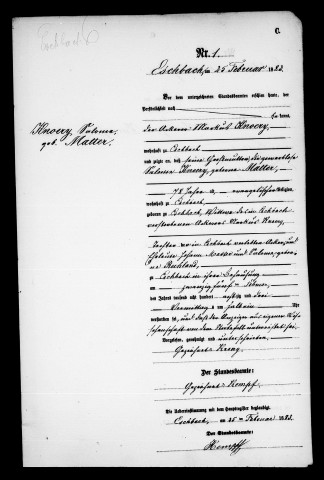 C.
Nr. 1.
Eschbach, am 25 Februar 1883.
Vor dem unterzeichneten Standesbeamten erschien heute, der
Persönlichkeit nach
kannt,
der Ackerer Markus Knoery,
Knoery, Salomea,
geb. Matter.
wohnhaft zu Eschbach
und zeigte an, daß seine Großmutter, die gewerblose
Salomea Knoery, geborene Matter,
78 Jahre alt, evangelischer Religion,
wohnhaft zu Eschbach
geboren zu Eschbach, Wittwe des in Eschbach
verstorbenen Ackerers Markus Knoery,
Tochter der in Eschbach verlebten Ackerer und
Eheleute Johann Matter und Salomea, gebore-
ne Ruhland,
zu Eschbach in ihrer Behausung
am zwanzig fünf Februar
des Jahres tausend acht hundert achtzig und drei
Vormittags um Uhr
verstorben sei, und daß der Anzeiger aus eigener Wis-
senschaft von dem Sterbefall unterrichtet sei.
Vorgelesen, genehmigt und unterschrieben
Der Standesbeamte:
Kempf
Die Uebereinstimmung mit dem Hauptregister beglaubigt
Eschbach, am 25ten Februar 1883.
Der Standesbeamte:
Kempf